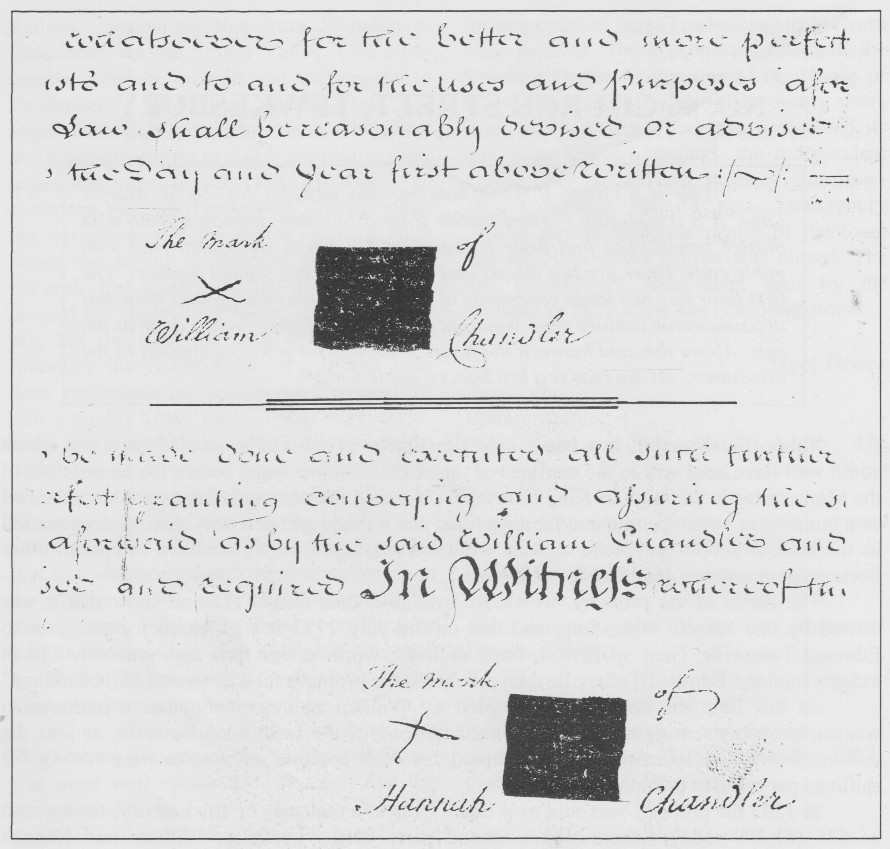 whatsoever for the better and more perfect
and to and for the uses and Purposes afor
Law shall be reasonably devised or advised
the Day and Year first above written
The mark of
William Chandler
be made done and executed all such further
granting conveying and assuring the
aforesaid as by the said William Chandler and
and required In Witness whereof the
The mark of
Hannah Chandler